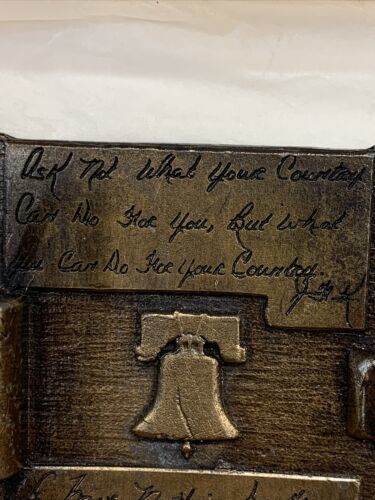 Ask Not What Your Country
Can Do For You, But What
You Can Do For Your Country.
JFK
I